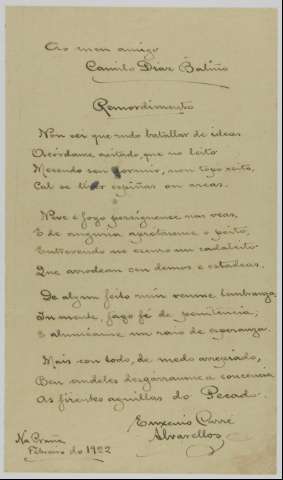 Ao meu amigo
Camilo Díaz Baliño
Remordimento
Non sei que rudo batallar de ideas
Acórdame axitado, que no leito
Mesmo sen dormir, non topo xeito,
Cal se espiñas ou areas.
Neve e fogo persíguenee nas veas,
E de anguria apretáseme o peito,
Entrevendo no escuro un cadaleito
Que arrodean cen demos e
De algun feito ruin venme lembranza,
In mente, fago fé de penitencia;
E aluméame un raio de esperanza.
Mais con todo, de medo arrepiado,
Ben andeles desgárranme a concencia
As firentes aguillas do Pecado.
Euxenio Carré
Alvarellos
Na Cruña
Febreiro do 1922